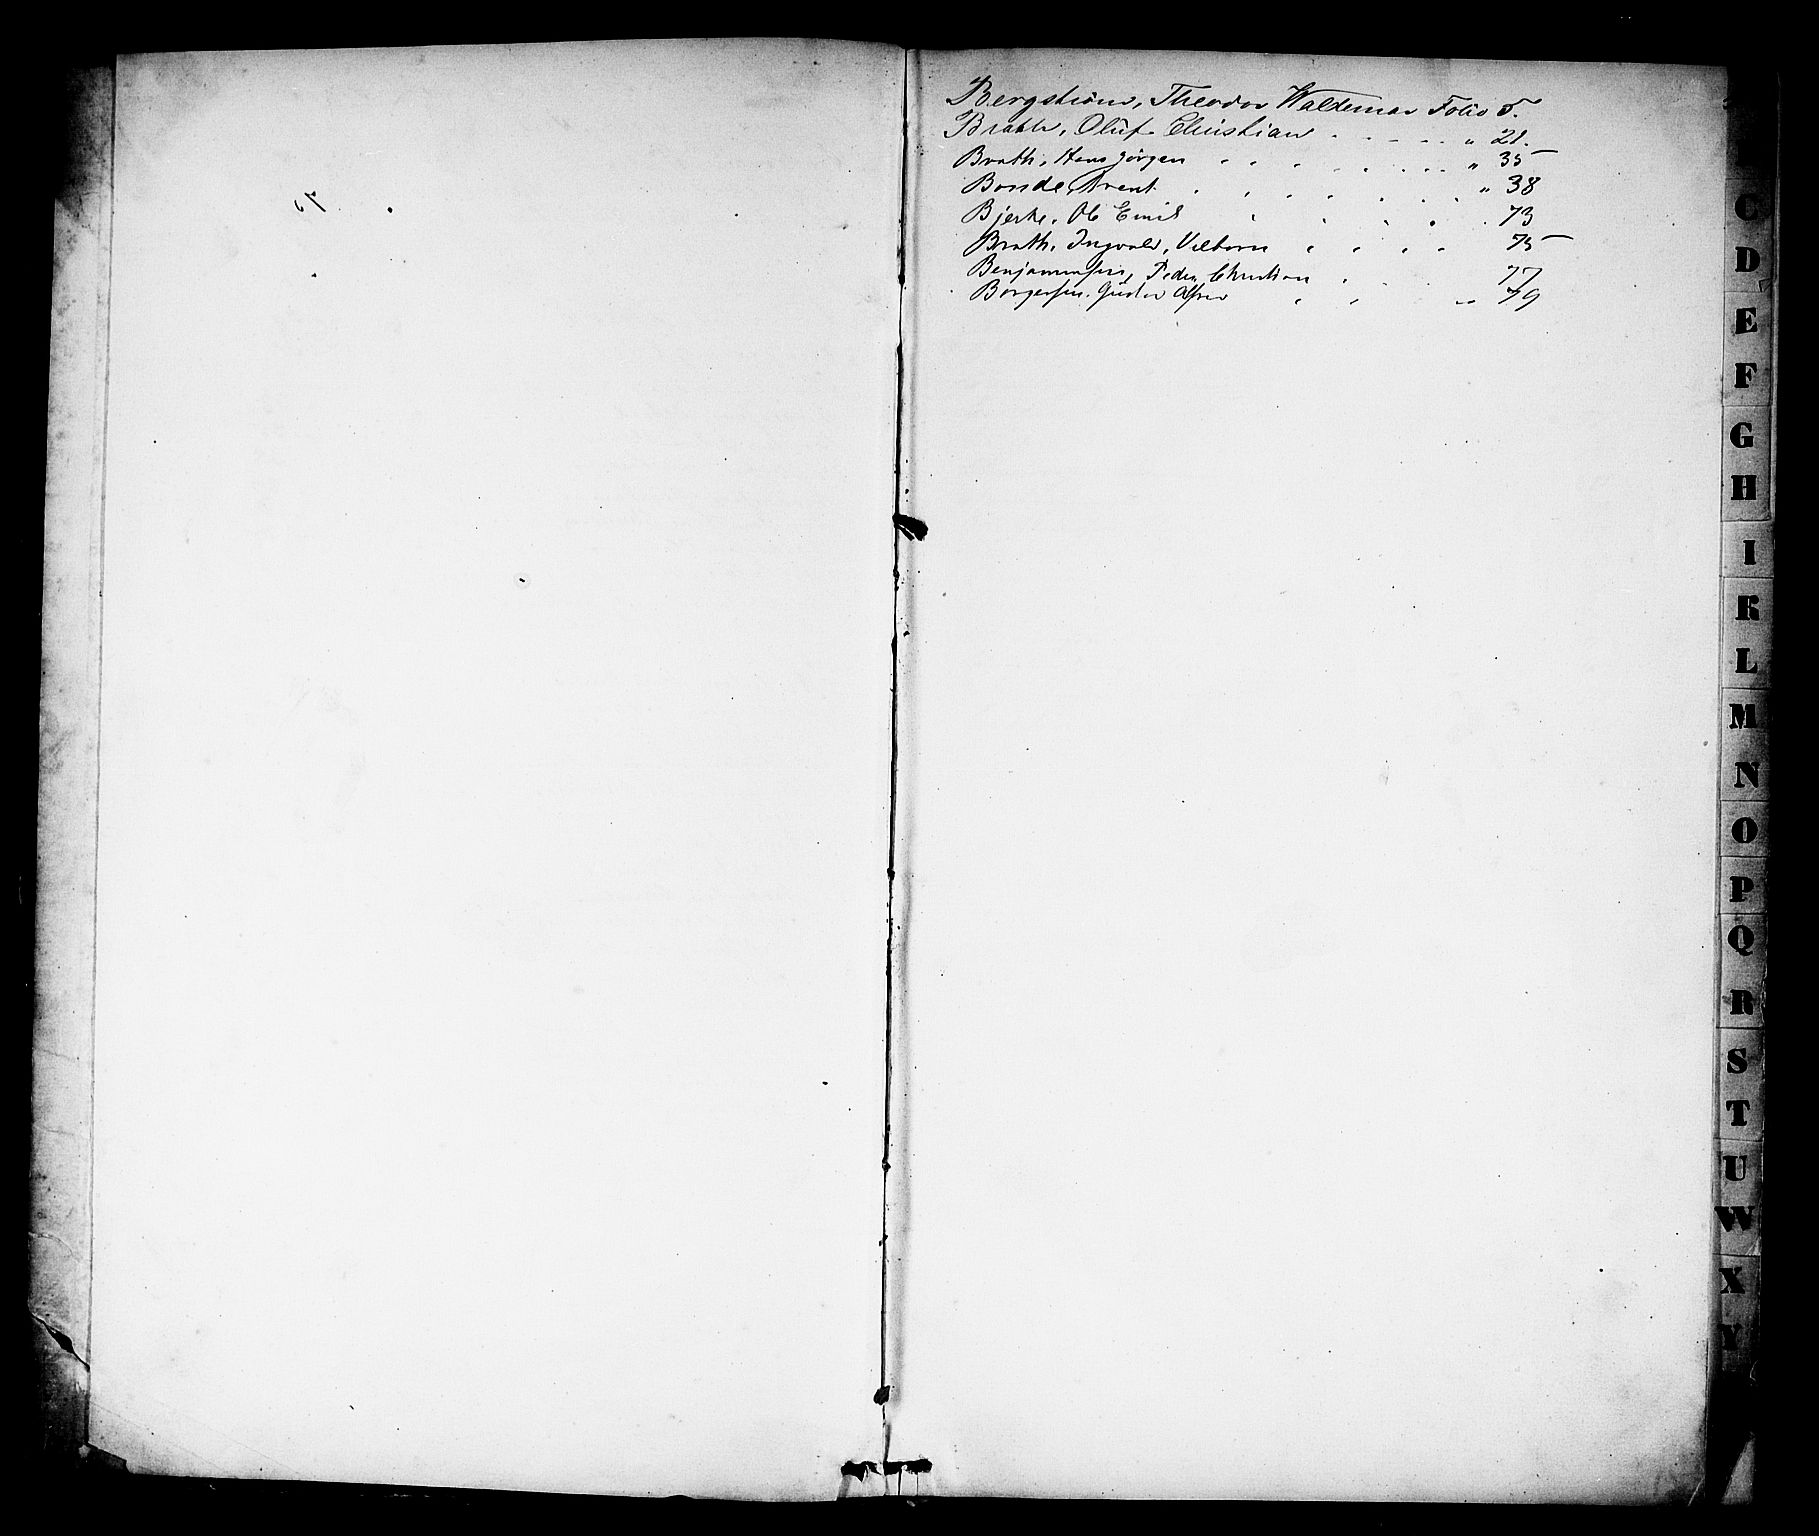 Bergström, Theodor Waldemar Folio 5.
Brath, Oluf Christian . . . . . „ 21.
Brath, Hans Jörgen . . . . . . „ 35
Bonde, Arent . . . . . . . „ 38
Bjerke, Ole Emil . . . . . 73
Brath, Ingvald, Vilhern . . . . 75
Benjaminsen, Peder Christian . . . 77
Borgersen, Gustav Alfred . . „ 79
C
D
E
F
G
H
I
K
L
M
N
O
P
Q
R
S
T
U
W
X
Y